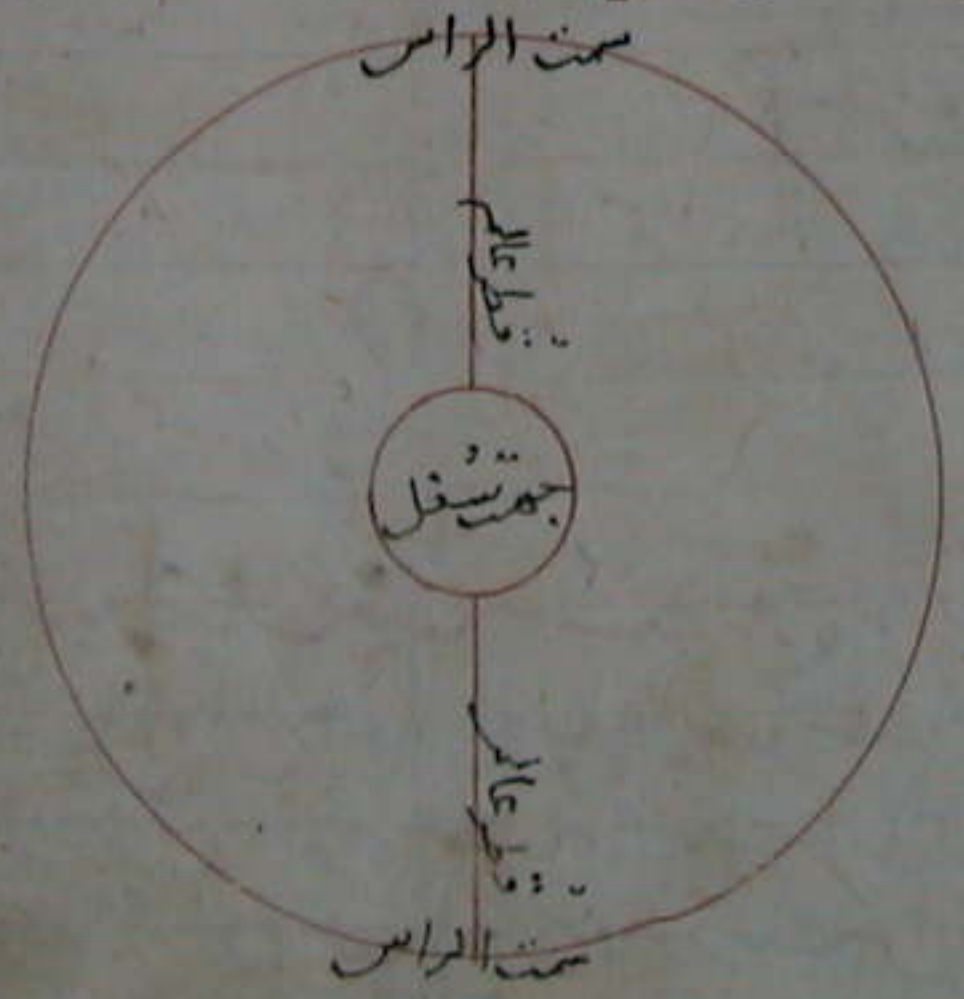 سمت الراس
قطر عالم
جهت سفل
قطر عالم
سمت الراس